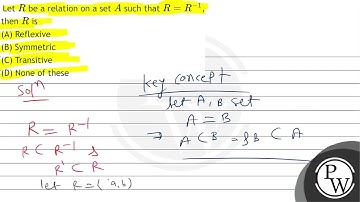 Let R be a relation on a set A such that R = R⁻¹,
then R is
(A) Reflexive
(B) Symmetric
(C) Transitive
(D) None of these
Solⁿ
R = R⁻¹
R ⊂ R⁻¹ &
R' ⊂ R
let R = { (a,b)
Key concept
let A, B set
A = B
⇒ A ⊂ B = B ⊂ A
PW